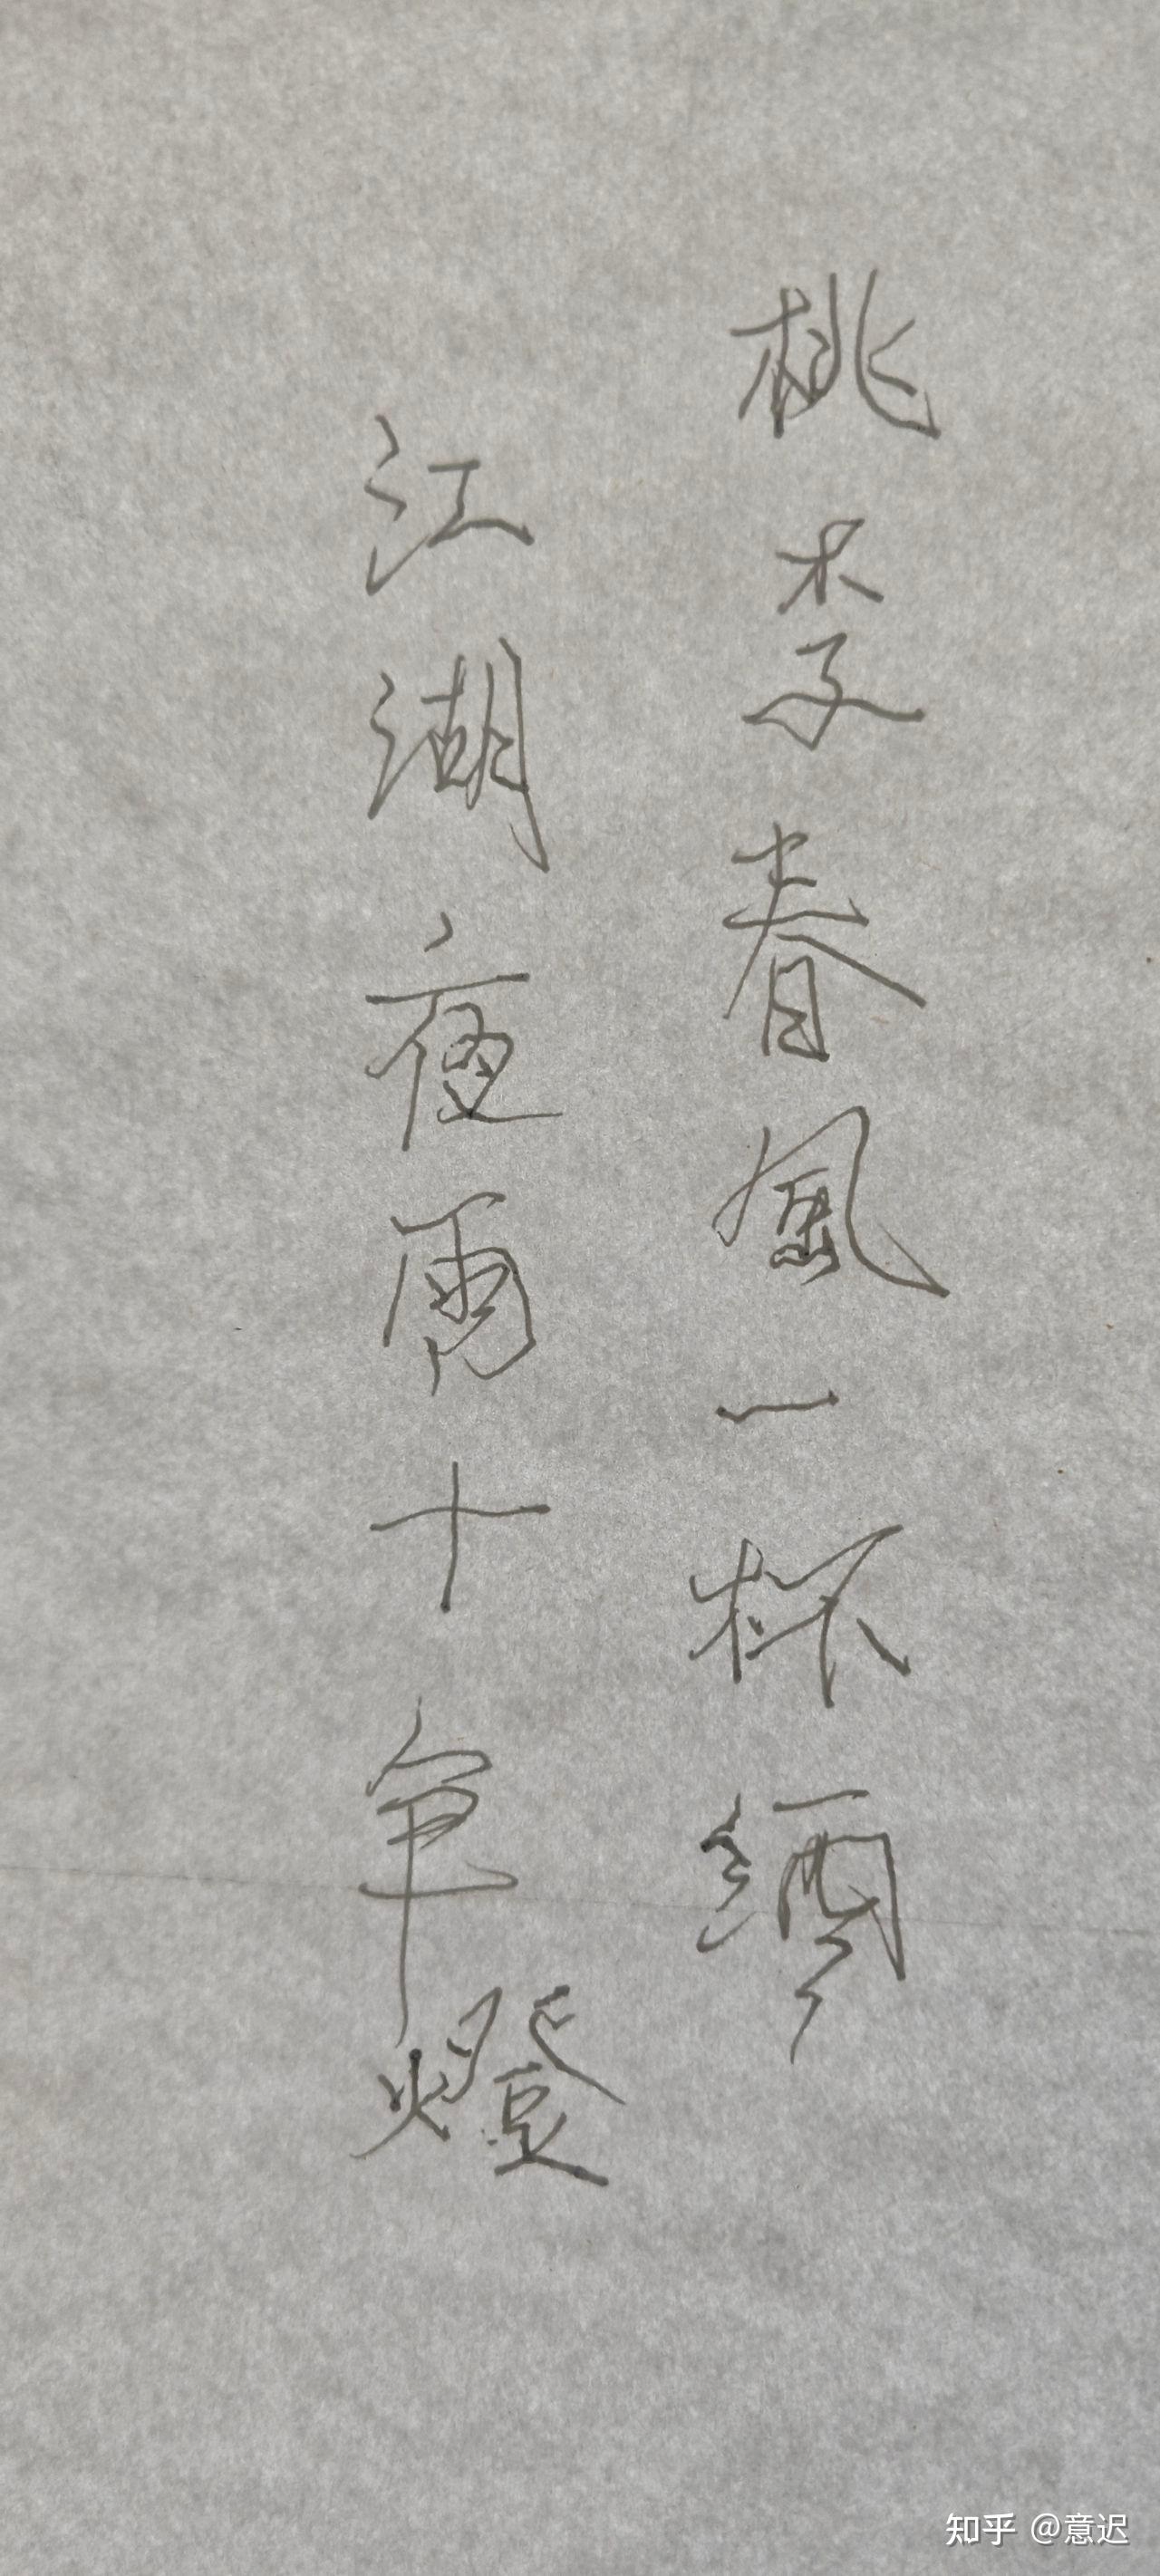 桃李春風一杯酒
江湖夜雨十年燈
知乎 @意迟